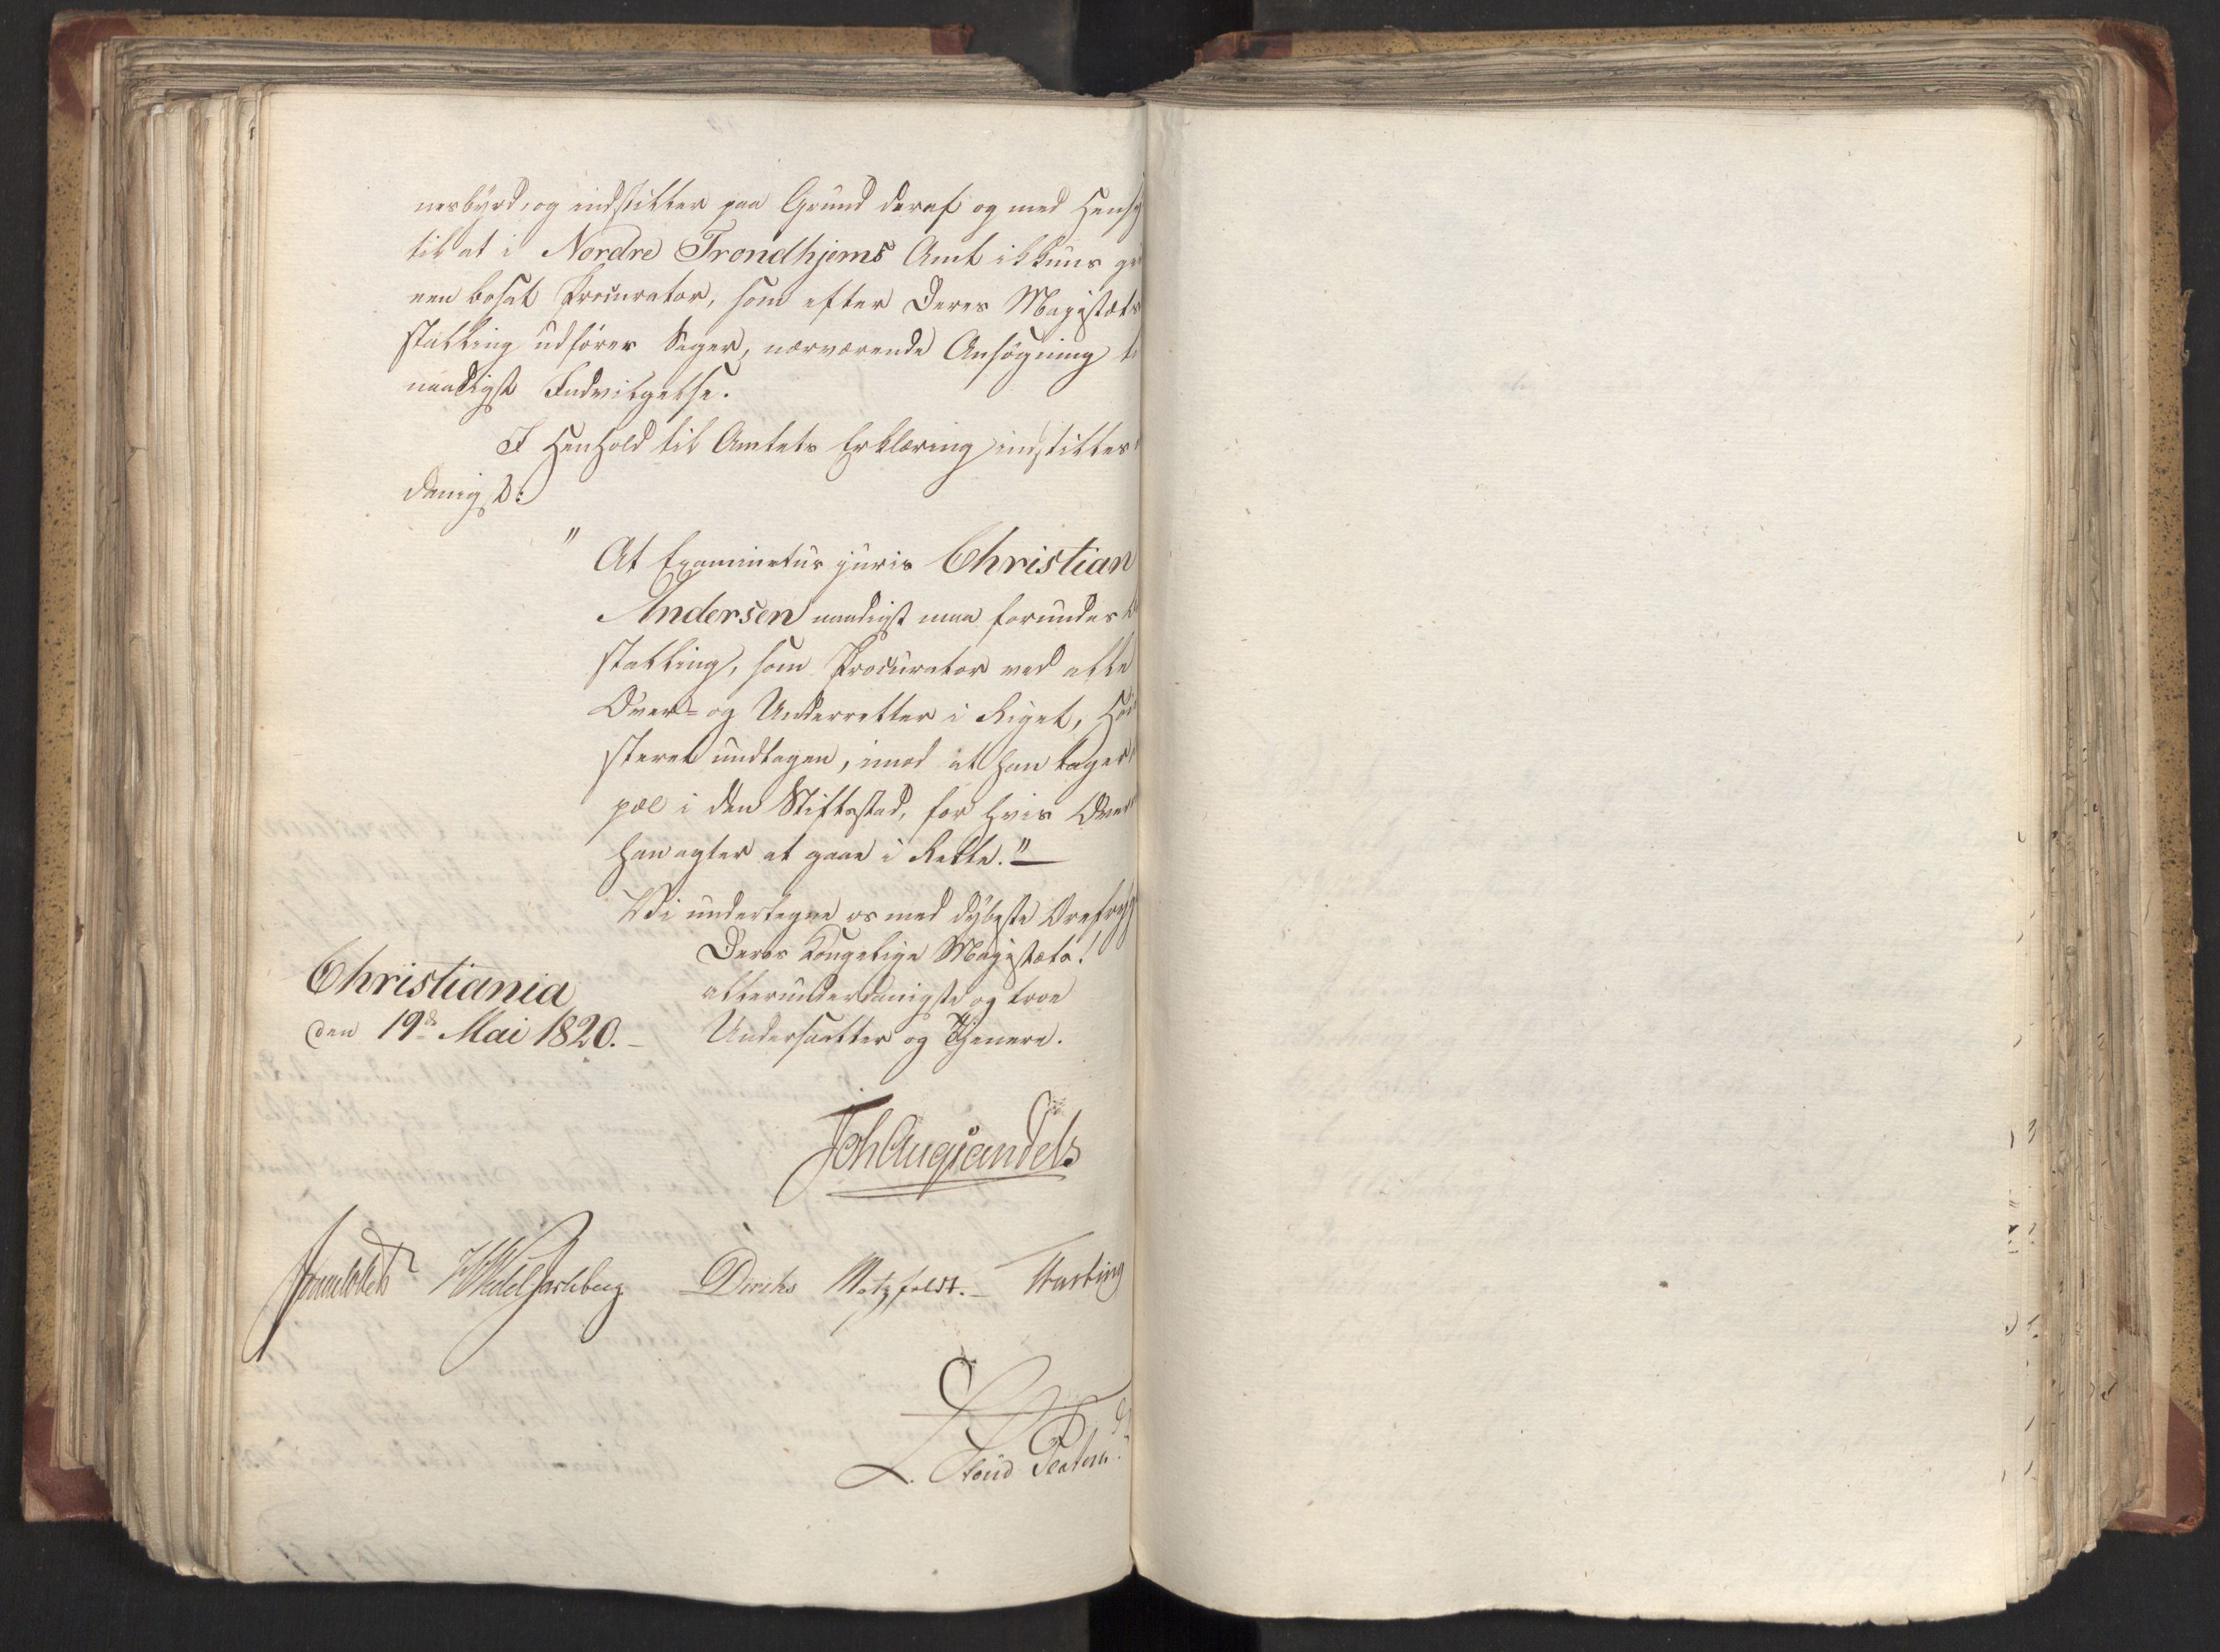 nesbyrd, og indstiller paa Grund deraf og med Hensy
til at i Nordre Trondhjems Amt ikkuns gi
een bosat Procurator, som efter Deres Majestæts
stalling udfører Sager, nærværende Ansøgning t
naadigst Indvilgelse.
I Henhold til Amtets Erklæring indstilles
danigst:
" At Examinatus juris Christian
Andersen naadigst maa forundes B
stalling, som Procurator ved alle
Over- og Underretter i Riget, Høi
steret undtagen, imod at han tager
pæl i den Stiftsstad, for hvis Over
han agter at gaae i Rette."
Vi undertegne os med dybeste Ærefrygt
Deres Kongelige Majestæts!
allerunderdanigste og troe
Undersaatter og Tjenere.
Christiania
den 19de Mai 1820.
Joh Aug Sandels
Sommerhielm HWedelJarlsberg Diriks Motzfeldt. Fasting
L. Stoud Platou